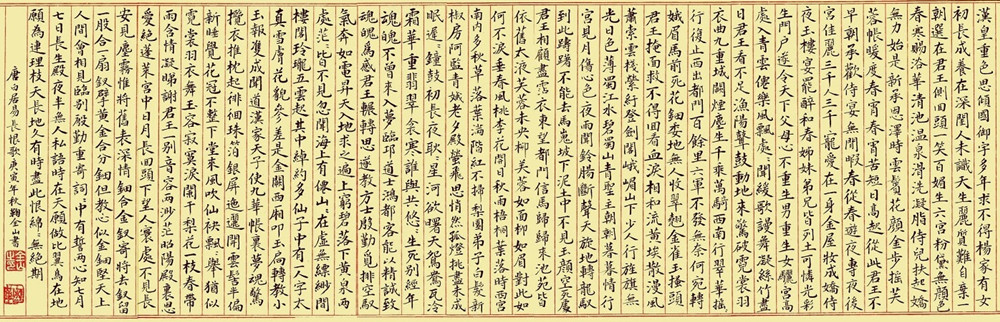 漢皇重色思傾國御宇多年求不得楊家有女
初長成養在深閨人未識天生麗質難自棄一
朝選在君王側回頭一笑百媚生六宮粉黛無顏色
春寒賜浴華清池溫泉水滑洗凝脂侍兒扶起嬌
無力始是新承恩澤時雲鬢花顏金步搖芙
蓉帳暖度春宵春宵苦短日高起從此君王不
早朝承歡侍宴無閒暇春從春遊夜專夜後
宮佳麗三千人三千寵愛在一身金屋妝成嬌侍
夜玉樓宴罷醉和春姊妹弟兄皆列土可憐光彩
生門戶遂令天下父母心不重生男重生女驪宮高
處入青雲僊樂風飄處〻聞緩歌謾舞凝絲竹盡
日君王看不足漁陽鼙鼓動地來驚破霓裳羽
衣曲九重城闕煙塵生千乘萬騎西南行翠華搖〻
行復止西出都門百餘里六軍不發無奈何宛轉
娥眉馬前死花鈿委地無人收翠翹金雀玉搔頭
君王掩面救不得回看血淚相和流黃埃散漫風
蕭索雲棧縈紆登劍閣峨嵋山下少人行旌旗無
光日色薄蜀江水碧蜀山青聖主朝〻暮〻情行
宮見月傷心色夜雨聞鈴腸斷聲天旋地轉龍馭
到此躊躇不能去馬嵬坡下泥土中不見玉顏空死處
君臣相顧盡霑衣東望都門信馬歸歸來池苑皆
依舊太液芙蓉未央柳芙蓉如面柳如眉對此如
何不淚垂春風桃李花開日秋雨梧桐葉落時西宮
南內多秋草落葉滿階紅不掃梨園弟子白髮新
椒房阿監青娥老夕殿螢飛思悄然孤燈挑盡未成
眠遲〻鐘鼓初長夜耿〻星河欲曙天鴛鴦瓦冷
霜華重翡翠衾寒誰與共悠〻生死別經年
魂魄不曾來入夢臨邛道士鴻都客能以精誠致
魂魄為感君王輾轉思遂教方士殷勤覓排空馭
氣奔如電昇天入地求之遍上窮碧落下黃泉兩
處茫〻皆不見忽聞海上有僊山山在虛無縹緲間
樓閣玲瓏五雲起其中綽約多仙子中有一人字太
真雪膚花貌參差是金闕西廂叩玉扃轉教小
玉報雙成聞道漢家天子使九華帳裏夢魂驚
攬衣推枕起徘徊珠箔銀屏迤邐開雲鬢半偏
新睡覺花冠不整下堂來風吹仙袂飄〻舉猶似
霓裳羽衣舞玉容寂寞淚闌干梨花一枝春帶
雨含情凝睇謝君王一別音容兩渺茫昭陽殿裏恩
愛絕蓬萊宮中日月長回頭下望人寰處不見長
安見塵霧惟將舊表深情鈿合金釵寄將去釵留
一股合一扇釵擘黃金合分鈿但教心似金鈿堅天上
人間會相見臨別殷勤重寄詞〻中有誓兩心知七月
七日長生殿夜半無人私語時在天願做比翼鳥在地
願為連理枝天長地久有時盡此恨綿〻無絕期
唐白居易長恨歌庚寅年秋鞠 山書